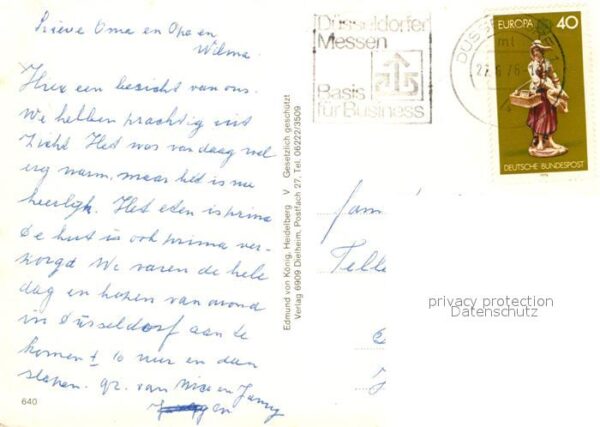 Lieve Oma en Opa en
Wilma.
Hier een bericht van ons.
We hebben prachtig uit
zicht. Het was vandaag wel
erg warm, maar het is nu
heerlijk. Het eten is prima
De hut is ook prima ver-
zorgd. We varen de hele
dag en hopen vanavond
in Düsseldorf aan te
komen ± 10 uur en dan
slapen. gr. van en Jamy
640
Edmund von König, Heidelberg V Gesetzlich geschützt
Verlag 6909 Dielheim, Postfach 27, Tel. 06222/3509
Düsseldorfer
Messen
Basis
für Business
DÜSS
mt
EUROPA 40
DEUTSCHE BUNDESPOST
1976
Fam
Telle
privacy protection
Datenschutz